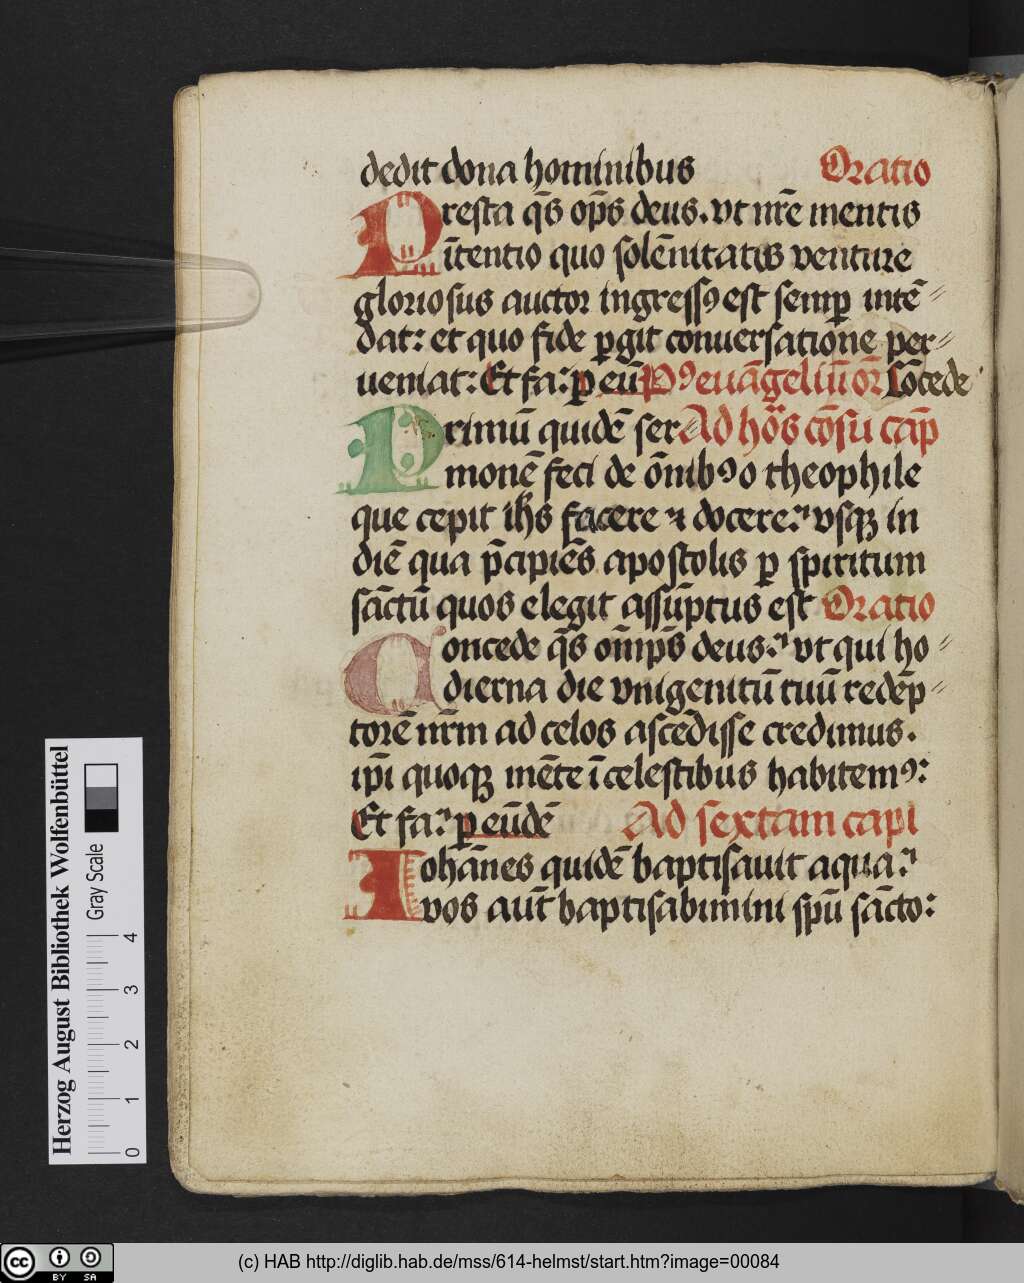 dedit dona hominibus Oratio
Presta q̄s op̄s deus. vt nr̄e mentis
ītentio quo solēnitatis venture
gloriosus auctor ingressꝰ est semꝑ intē⸗
dat: et quo fide ꝑgit conuersatione per⸗
ueniat: Et fa: ꝑ eū Pꝰ euāgeliū or̄ Cōcede
Primū quidē ser⸗ Ad ho͛s cōsu cap̄
monē feci de ōnibꝰ o theophile
que cepit ih̄s facere ⁊ docere: vsqꝫ in
diē qua p̄cipiēs apostolis ꝑ spiritum
sāctū quos elegit assūptus est Oratio
Concede q̄s om̄ip̄s deus: vt qui ho⸗
dierna die vnigenitū tuū redēp⸗
torē nr̄m ad celos ascēdisse credimus.
ip̄i quoqꝫ mēte ī celestibus habitemꝰ:
Et fa: ꝑ eūdē Ad sextam capi
Iohānes quidē baptisauit aqua:
vos aūt baptisabimini sp̄u sācto:
Herzog August Bibliothek Wolfenbüttel
Gray Scale
0 1 2 3 4
cc BY SA
(c) HAB http://diglib.hab.de/mss/614-helmst/start.htm?image=00084